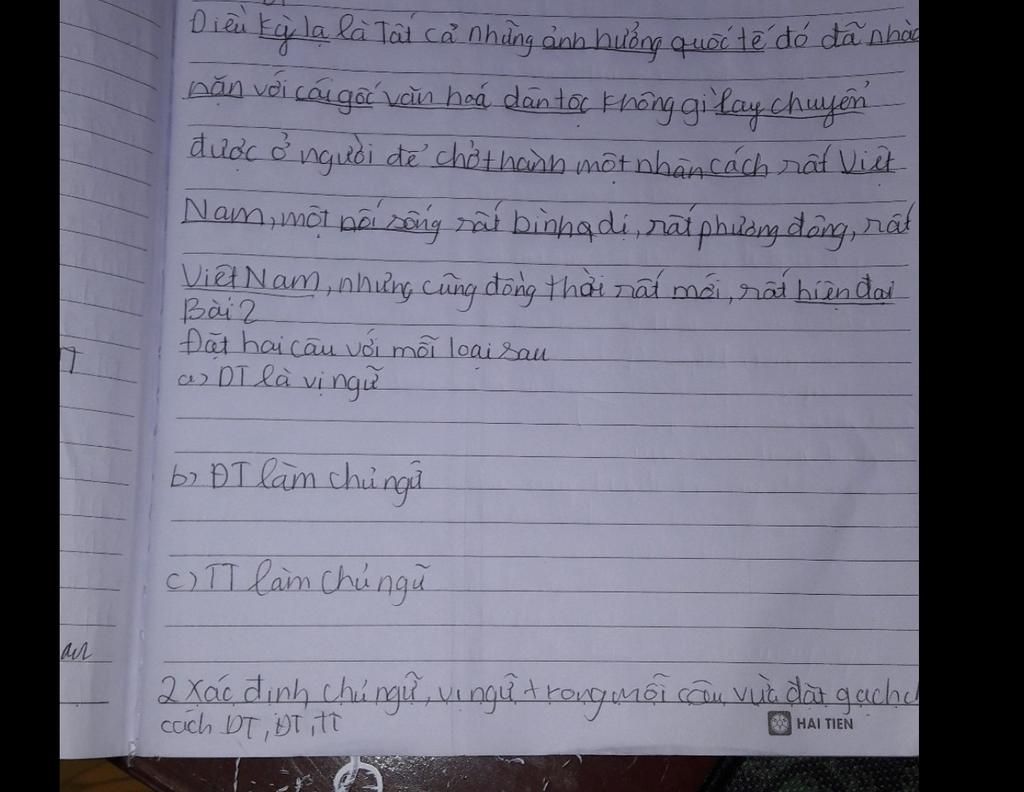 Điều kỳ lạ là Tất cả những ảnh hưởng quốc tế đó đã nhào
nặn với cái gốc văn hoá dân tộc không gì lay chuyển
được ở người để chở thành một nhân cách rất Việt
Nam, một nối sống rất bình dị, rất phương đông, rất
Việt Nam, nhưng cũng đồng thời rất mới, rất hiện đại
Bài 2
Đặt hai câu với mỗi loại sau
a) DT là vị ngữ
b) ĐT làm chủ ngữ
c) TT làm chủ ngữ
2 Xác định chủ ngữ, vị ngữ trong mỗi câu vừa đặt gạch
cách DT, ĐT, TT
HAI TIEN